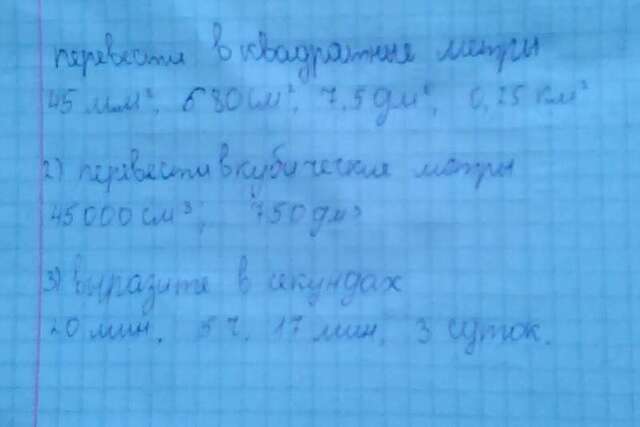 перевести в квадратные метры
45 мм², 680 см², 7,5 дм², 0,25 км²
2) перевести в кубические метры
45000 см³, 750 дм³
3) выразите в секундах
20 мин, 5 ч. 17 мин, 3 суток.